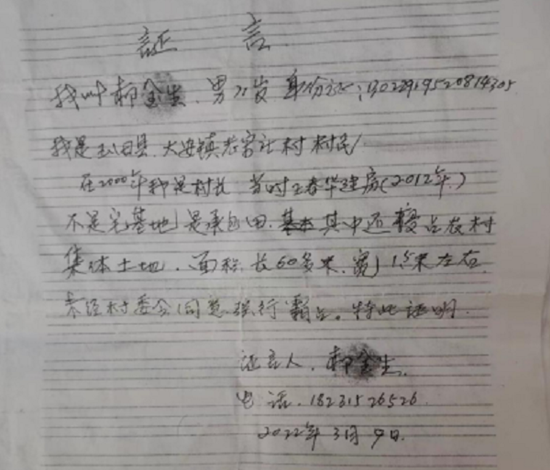 证 言
我叫郝金生. 男71岁 身份证:
我是玉田县 大安镇 村 村民
在2000年 是村长 当时王春华建房(2012年)
不是宅基地 是承包田. 其中还 占农村
集体土地. 面积 长60多米. 宽 15米左右.
未经村委会同意强行霸占。特此证明.
证言人. 郝金生.
电话. 18231526526
2022年3月9日.